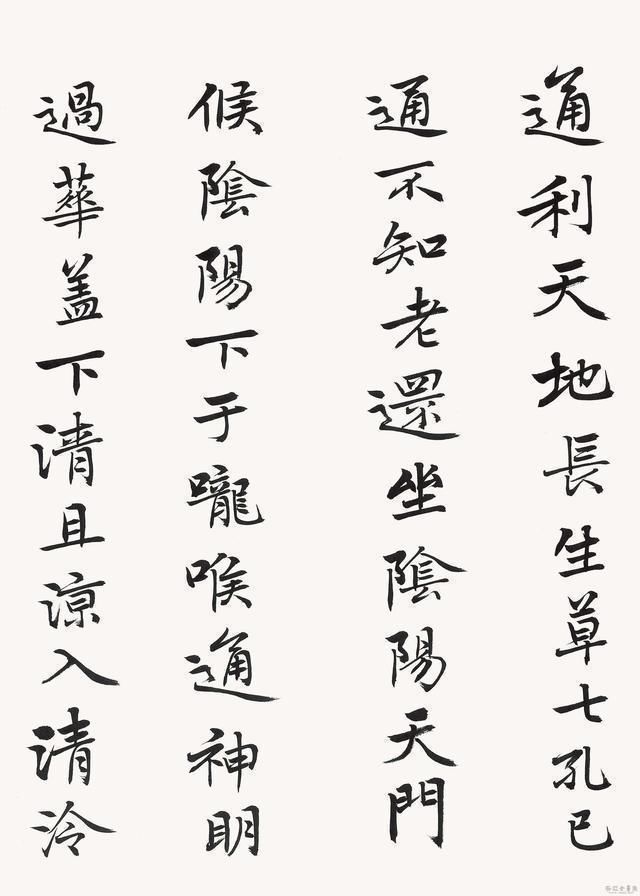 通利天地長生草七孔已
通不知老還坐陰陽天門
候陰陽下于嚨喉通神明
過華盖下清且涼入清泠